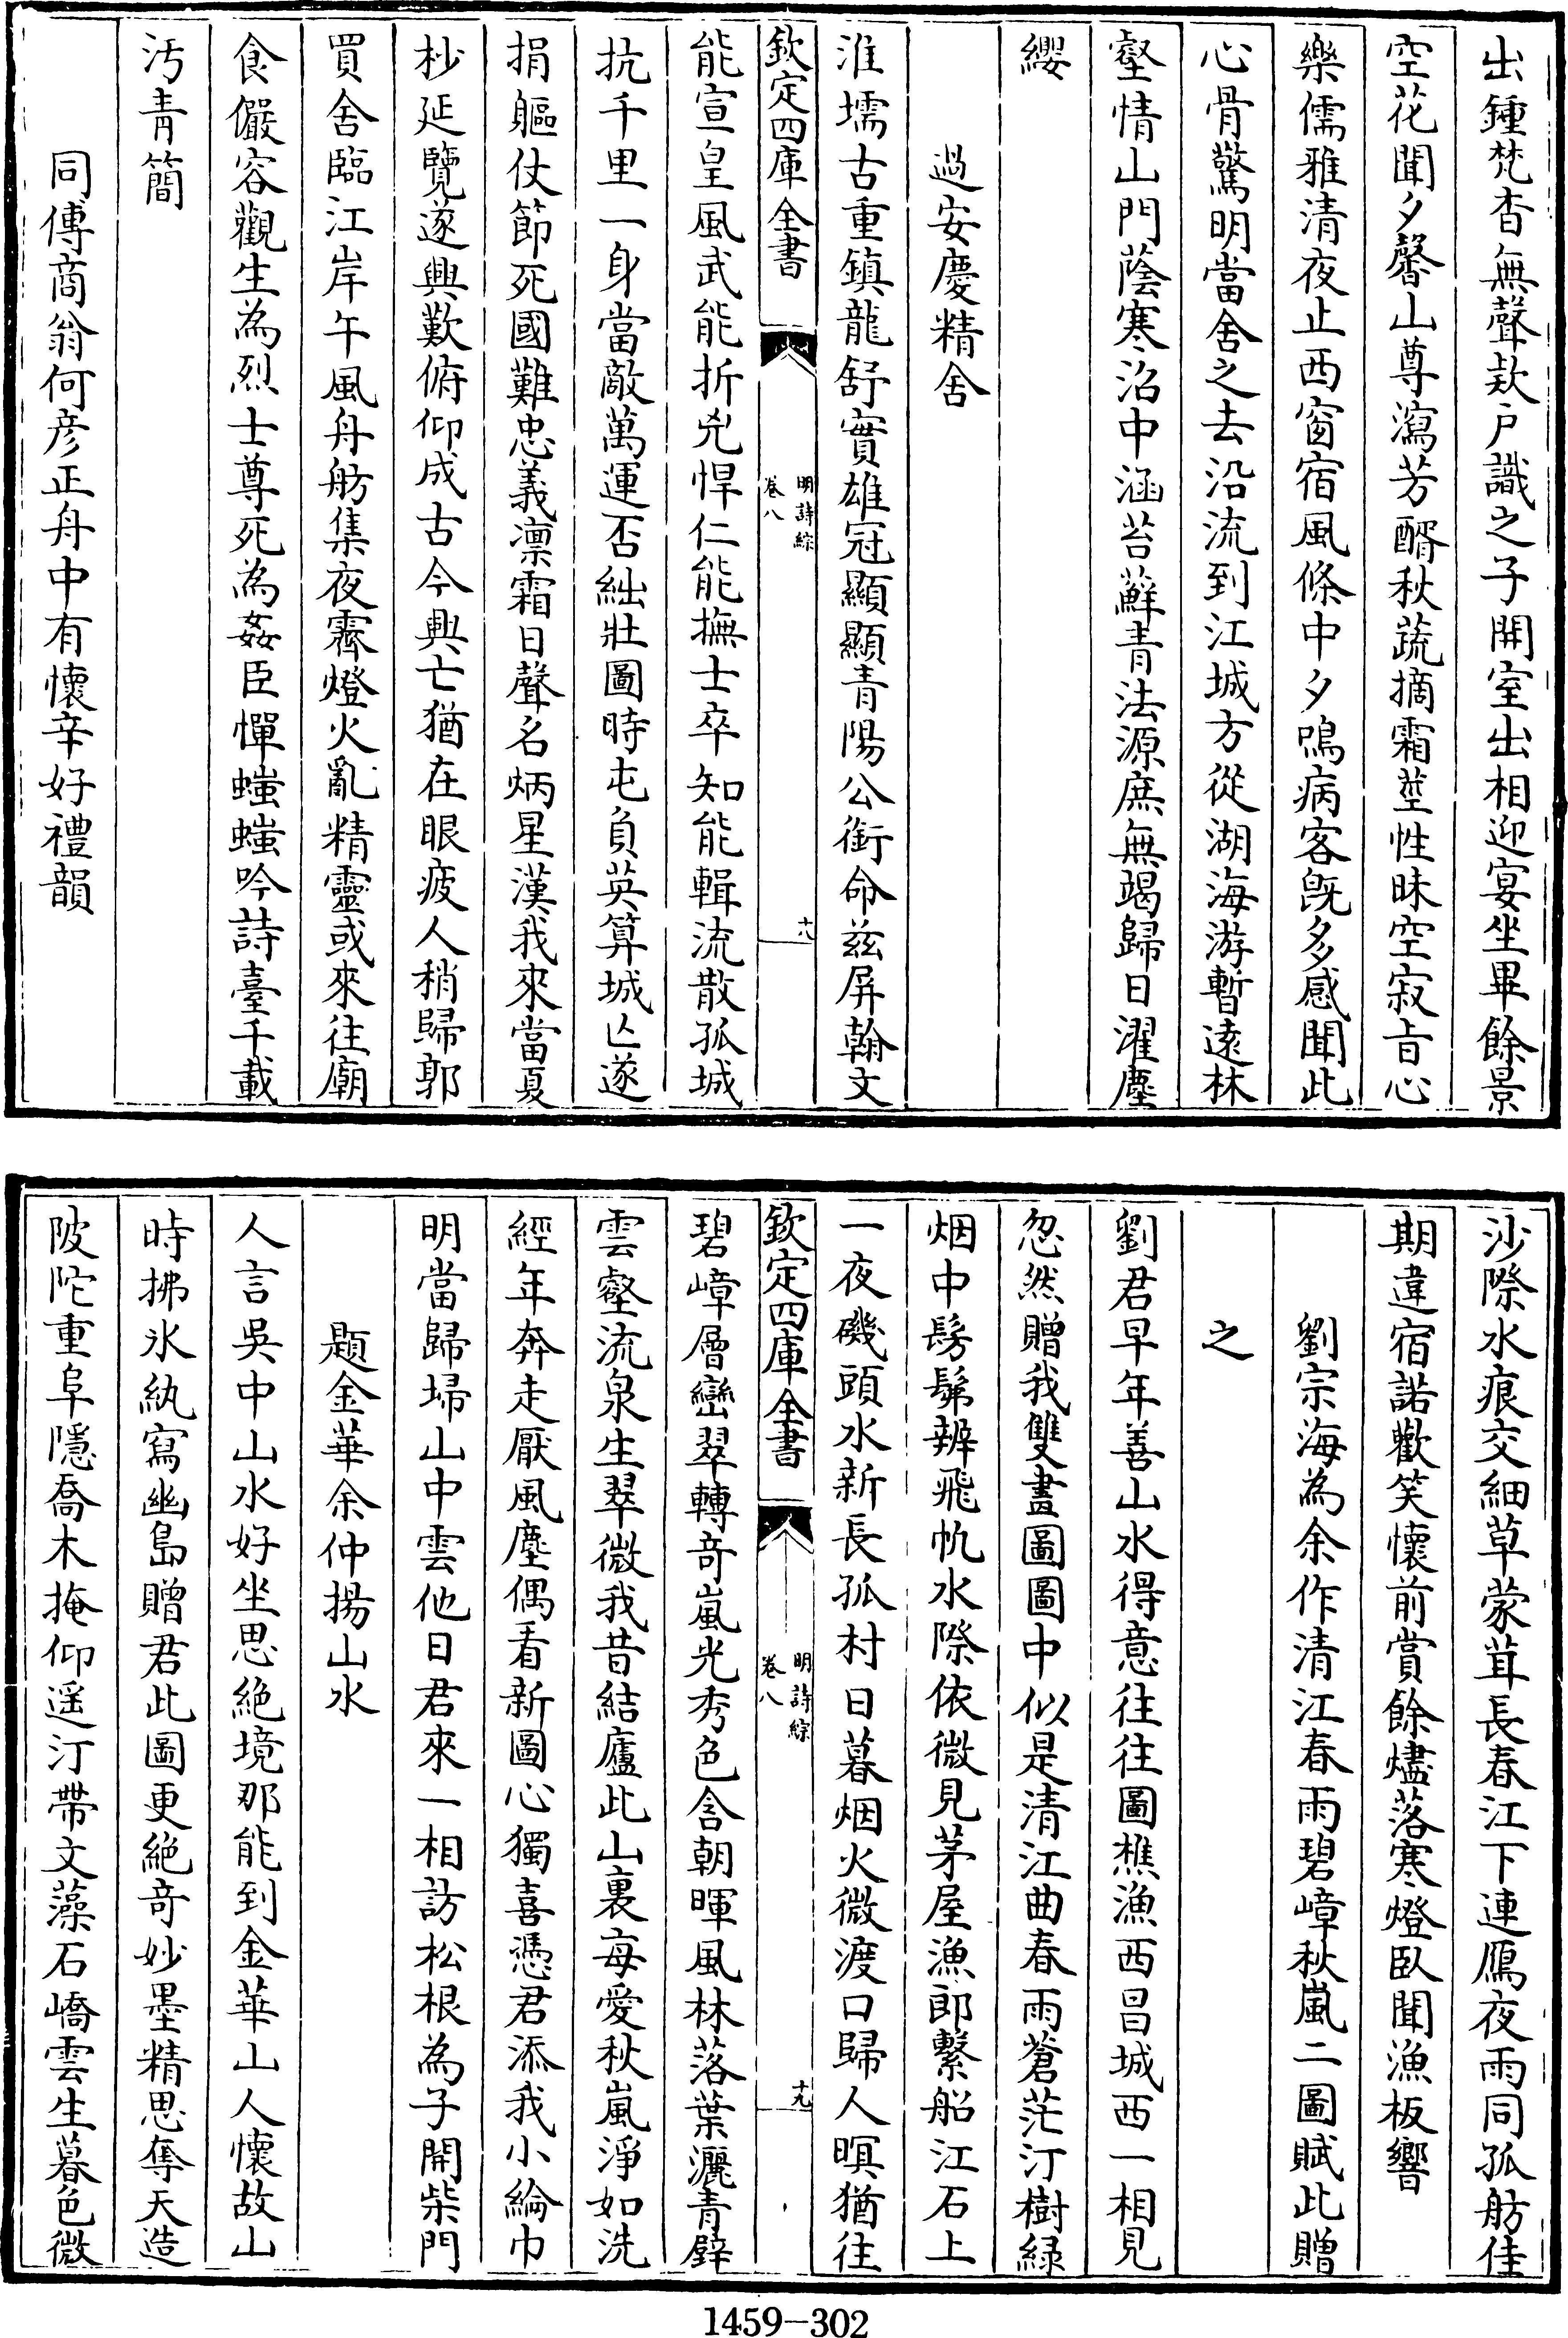 出鍾梵杳無聲欵戶識之子開室出相迎宴坐畢餘景
空花聞夕馨山尊瀉芳醑秋蔬摘霜莖性昧空寂旨心
樂儒雅清夜止西窗宿風條中夕鳴病客旣多感聞此
心骨驚明當舍之去沿流到江城方從湖海游暫遠林
壑情山門蔭寒沼中涵苔蘚青法源庶無竭歸日濯塵
纓
過安慶精舍
淮壖古重鎮龍舒實雄冠顯顯青陽公銜命茲屏翰文
欽定四庫全書
明詩綜
卷八
十八
能宣皇風武能折兇悍仁能撫士卒知能輯流散孤城
抗千里一身當敵萬運否絀壯圖時屯負英算城亡遂
捐軀仗節死國難忠義凜霜日聲名炳星漢我來當夏
杪延覽遂興歎俯仰成古今興亡猶在眼疲人稍歸郭
買舍臨江岸午風舟舫集夜霽燈火亂精靈或來往廟
食儼容觀生為烈士尊死為姦臣憚蚩蚩吟詩臺千載
汚青簡
同傅商翁何彥正舟中有懷辛好禮韻
沙際水痕交細草蒙茸長春江下連鴈夜雨同孤舫佳
期違宿諾歡笑懷前賞餘燼落寒燈臥聞漁板響
劉宗海為余作清江春雨碧嶂秋嵐二圖賦此贈
之
劉君早年善山水得意往往圖樵漁西昌城西一相見
忽然贈我雙畫圖圖中似是清江曲春雨蒼茫汀樹綠
烟中髣髴辨飛帆水際依微見茅屋漁郎繫船江石上
一夜磯頭水新長孤村日暮烟火微渡口歸人暝猶往
欽定四庫全書
明詩綜
卷八
十九
碧嶂層巒翠轉奇嵐光秀色含朝暉風林落葉灑青壁
雲壑流泉生翠微我昔結廬此山裏每愛秋嵐淨如洗
經年奔走厭風塵偶看新圖心獨喜憑君添我小綸巾
明當歸埽山中雲他日君來一相訪松根為子開柴門
題金華余仲揚山水
人言吳中山水好坐思絕境那能到金華山人懷故山
時拂氷紈寫幽島贈君此圖更絕奇妙墨精思奪天造
陂陀重阜隱喬木掩仰遥汀帶文藻石嶠雲生暮色微
1459-302